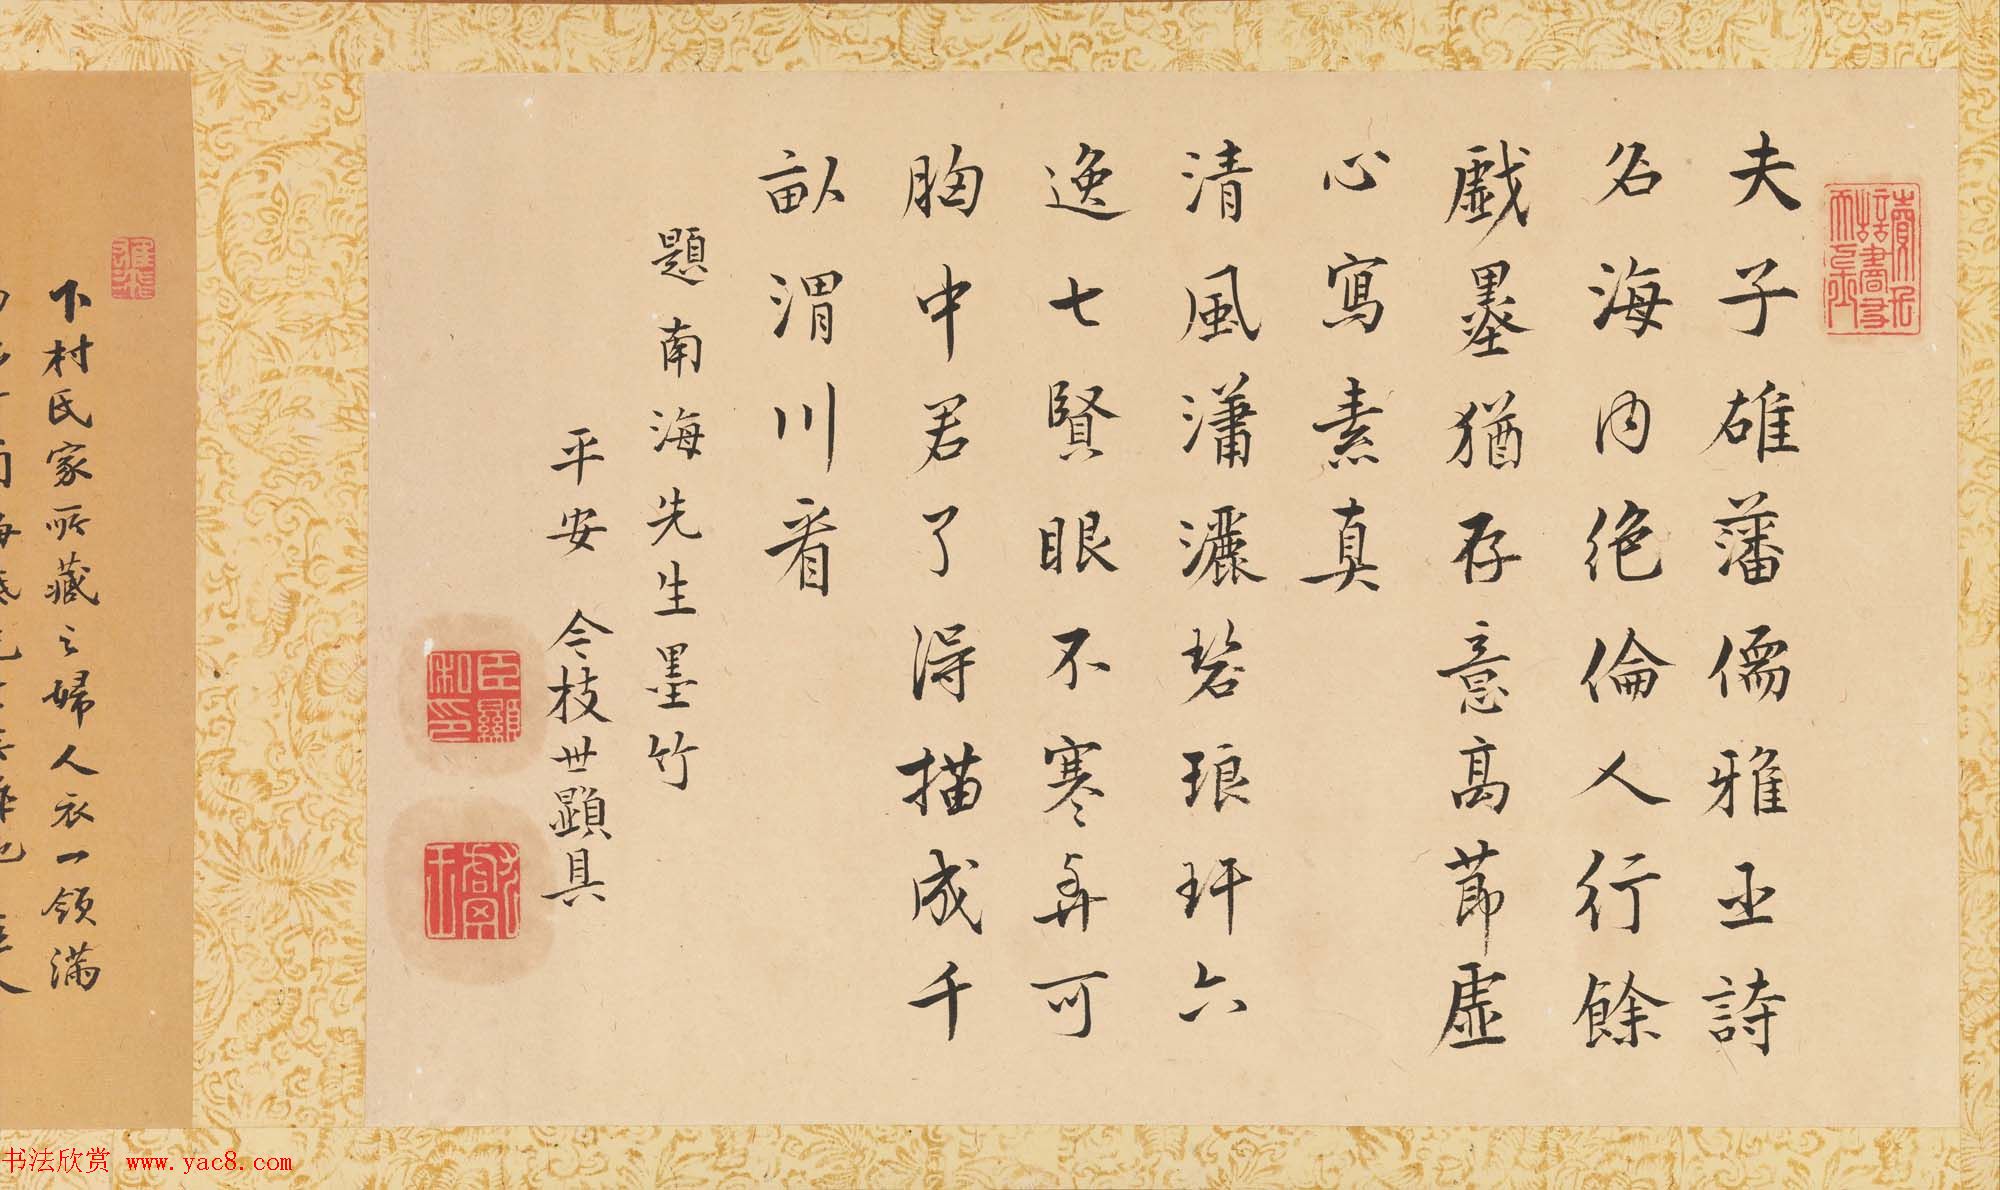 夫子雄藩儒雅丕詩
名海内絶倫人行餘
戱墨猶存意高莭虛
心寫素真
清風瀟灑碧琅玕六
逸七賢眼不寒弄可
胸中君了得描成千
畝渭川看
題南海先生墨竹
平安 今枝世顕具
臣顯
下村氏家所藏之婦人衣一領満
书法欣赏 www.yac8.com